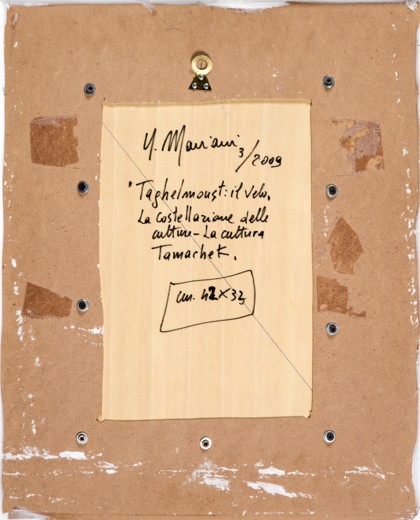 M. Mariani 3/2009
"Taghelmoust: il velo.
La costellazione delle
culture - La cultura
Tamachek.
cm. 42 x 32